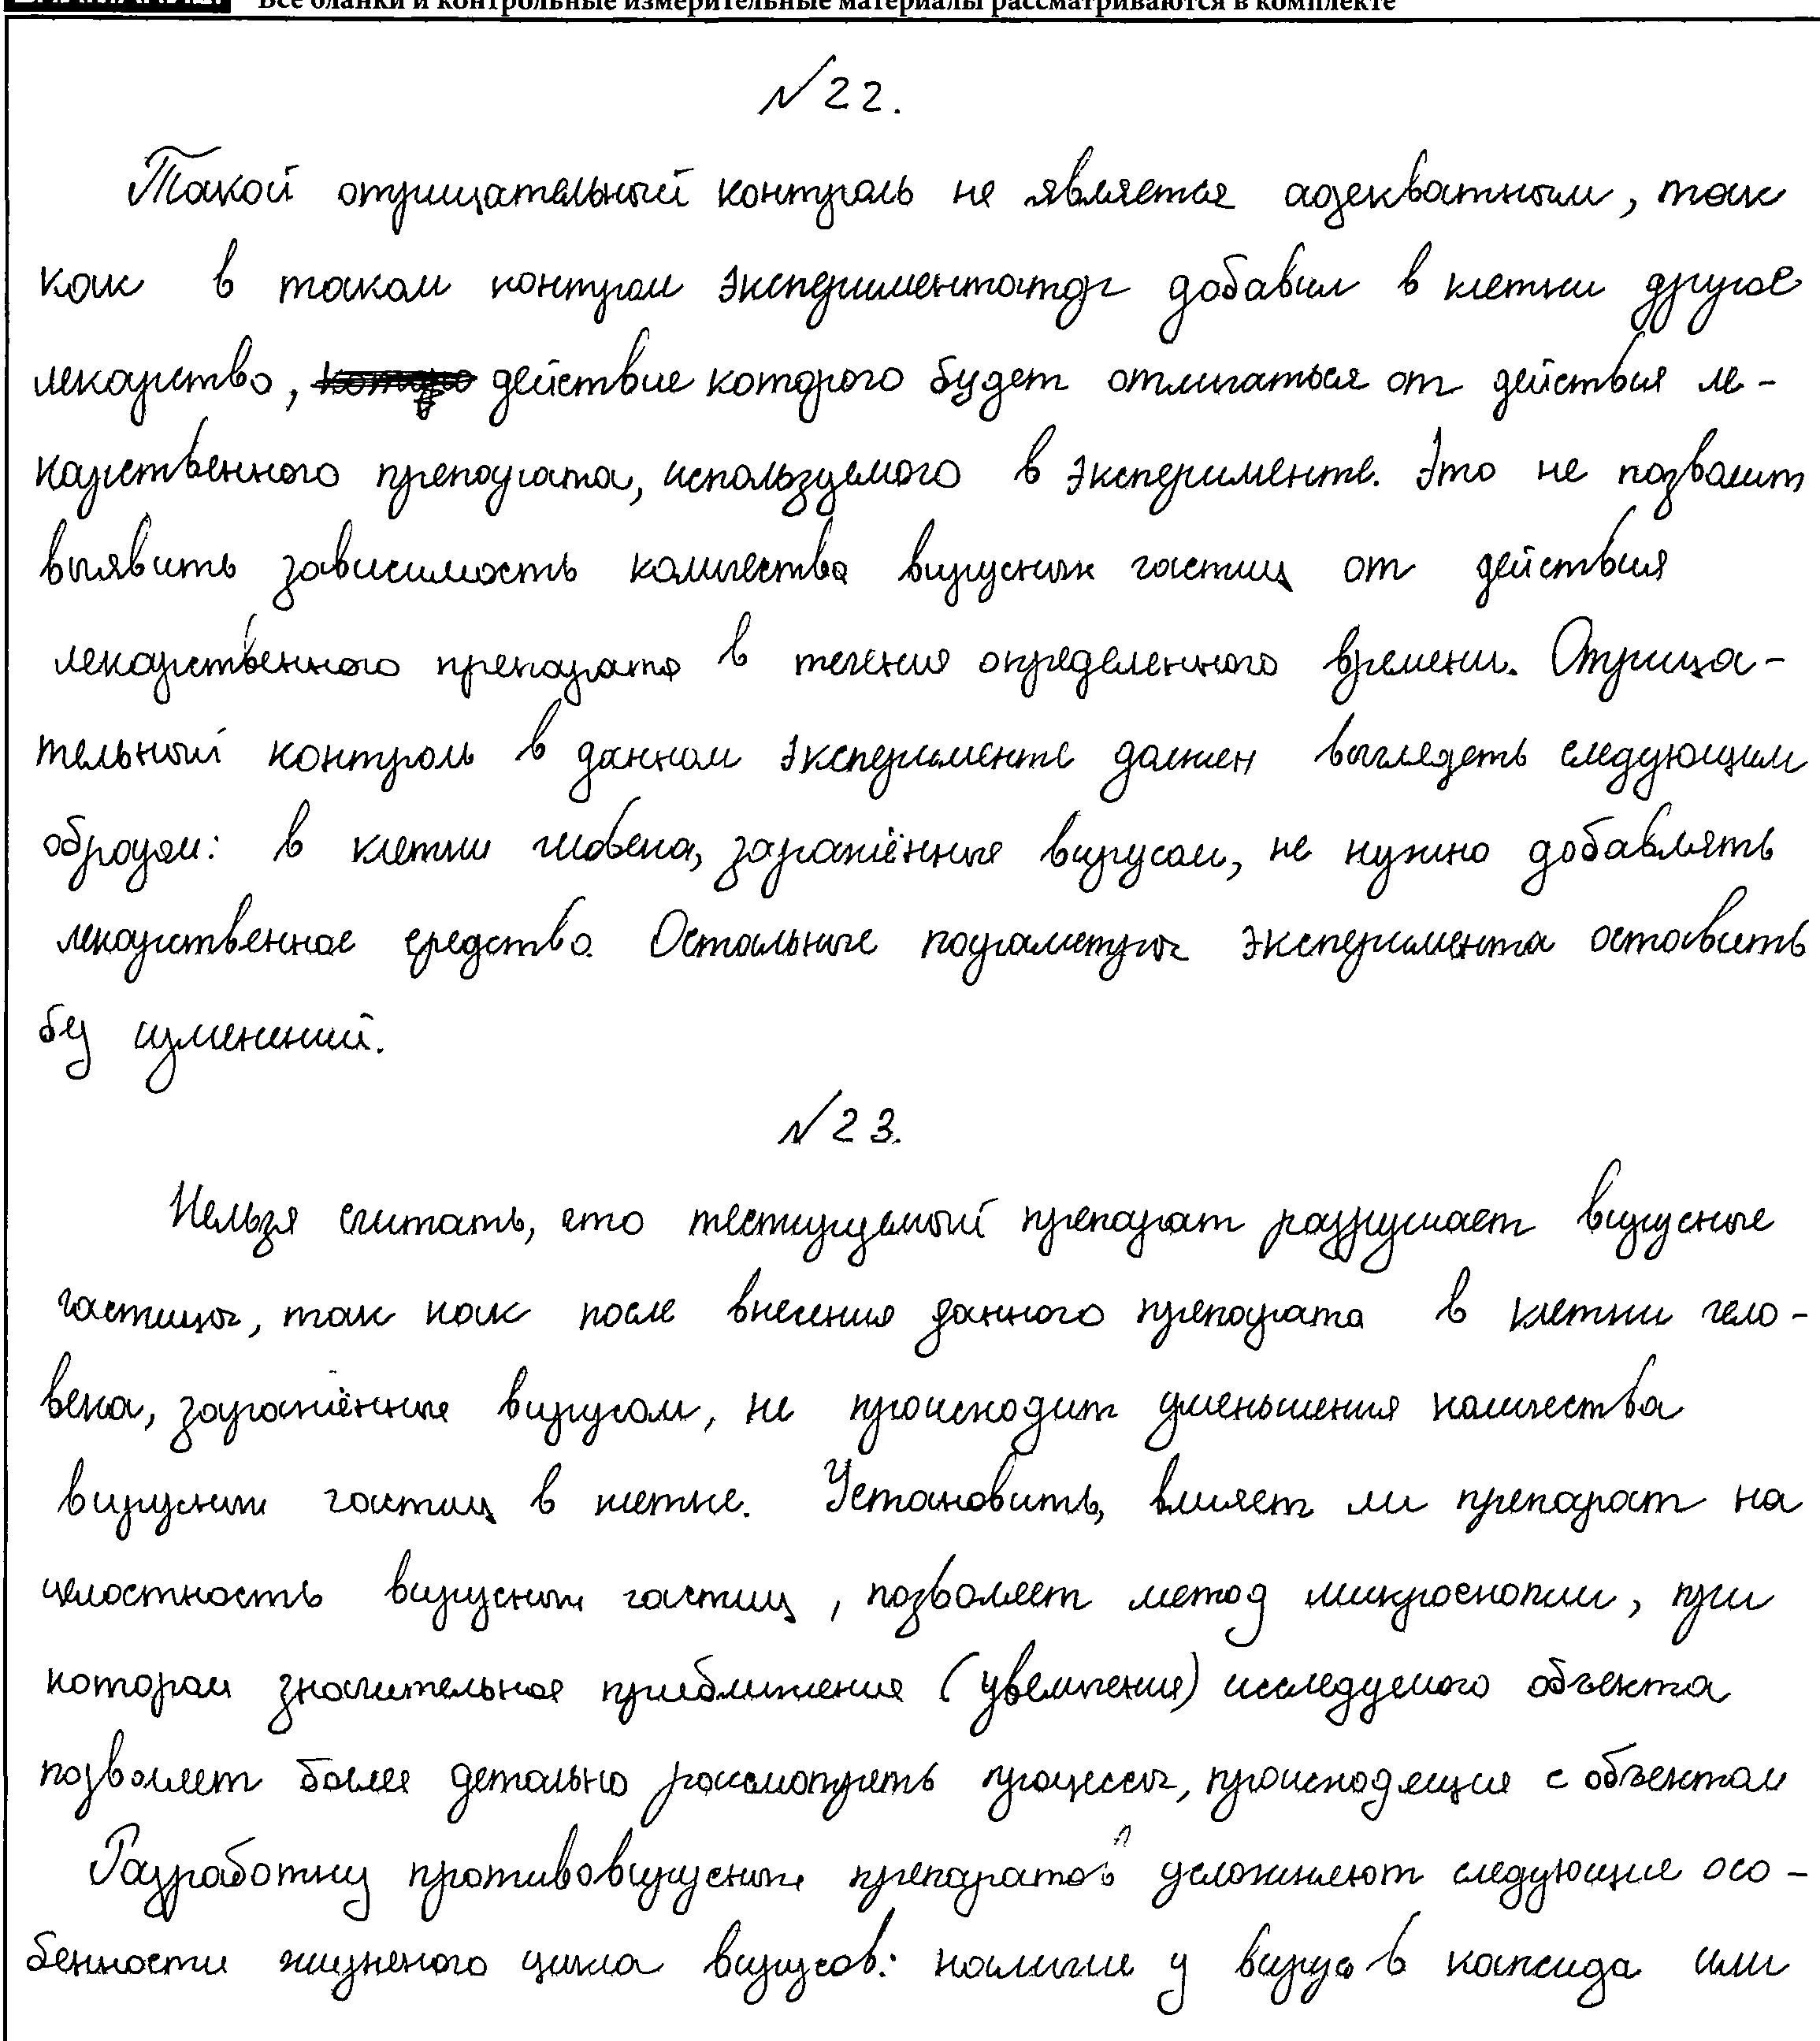 Все бланки и контрольные измерительные материалы рассматриваются в комплекте
№22.
Такой отрицательный контроль не является адекватным, так
как в таком контроле экспериментатор добавил в клетки другое
лекарство, действие которого будет отличаться от действия ле-
карственного препарата, используемого в эксперименте. Это не позволит
выявить зависимость количества вирусных частиц от действия
лекарственного препарата в течения определенного времени. Отрица-
тельный контроль в данном эксперименте должен выглядеть следующим
образом: в клетки человека, заражённые вирусом, не нужно добавлять
лекарственное средство. Остальные параметры эксперимента оставить
без изменений.
№23.
Нельзя считать, что тестируемый препарат разрушает вирусные
частицы, так как после внесения данного препарата в клетки чело-
века, заражённые вирусом, не происходит уменьшения количества
вирусных частиц в клетке. Установить, влияет ли препарат на
целостность вирусных частиц, позволяет метод микроскопии, при
котором значительное приближение (увеличения) исследуемого объекта
позволяет более детально рассмотреть процессы, происходящие с объектом
Разработку противовирусных препаратов усложняют следующие осо-
бенности жизненого цикла вирусов: наличие у вирусов капсида или